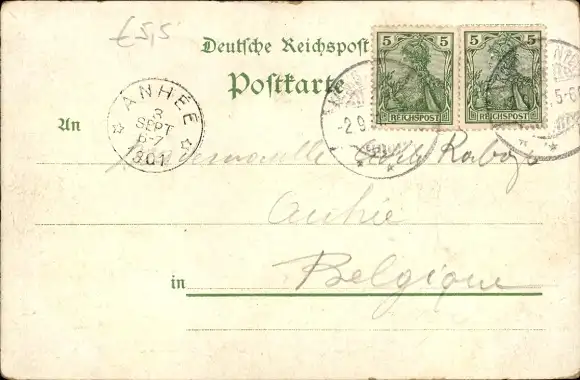 £5,5
Deutsche Reichspost
Postkarte
5 5 5 5
REICHSPOST REICHSPOST
ANHÉE
3
SEPT
6-7
1901
-2.9.
5-6
An
Mademoiselle
Anhée
in Belgique